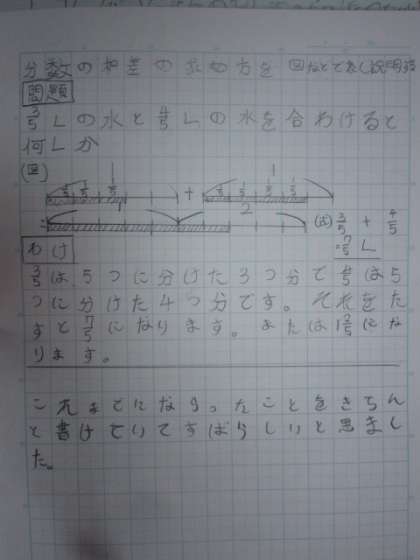 分数の和差の求め方を図などで表し説明する
問題
3/5Lの水と4/5Lの水を合わせると
何Lか
(図)
1 1
1/5 1/5 1/5 + 1/5 1/5 1/5 1/5
= 1 2 (式) 3/5 + 4/5
=7/5 L
わけ
3/5は5つに分けた3つ分で4/5は5
つに分けた4つ分です。それをた
すと7/5になります。または1 2/5にな
ります。
これまでにならったことをきちん
と書けていてすばらしいと思まし
た。